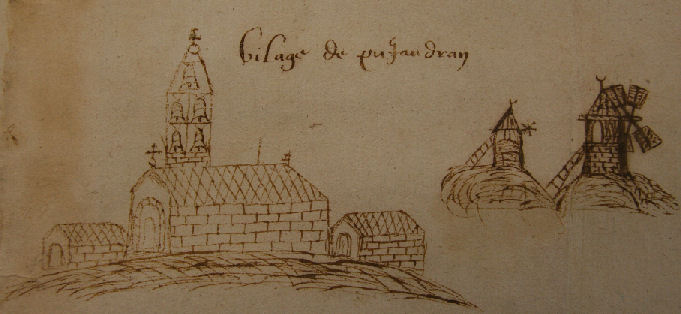 Vilage de pujaudran